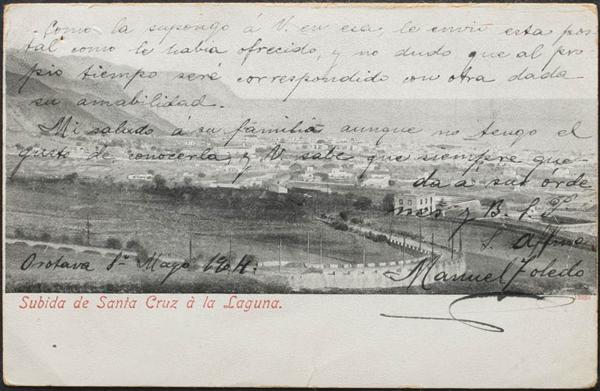 Como la supongo á V. en esa, le envio esta pos-
tal como le habia ofrecido, y no dudo que al pro-
pio tiempo seré correspondido con otra dada
su amabilidad.
Mi saludo á su familia aunque no tengo el
gusto de conocerla, y V. sabe que siempre que-
da a sus órde-
nes, y B. S. P.
S. Affmo
Orotava 1º Mayo 1904.
Manuel Toledo
Subida de Santa Cruz à la Laguna.